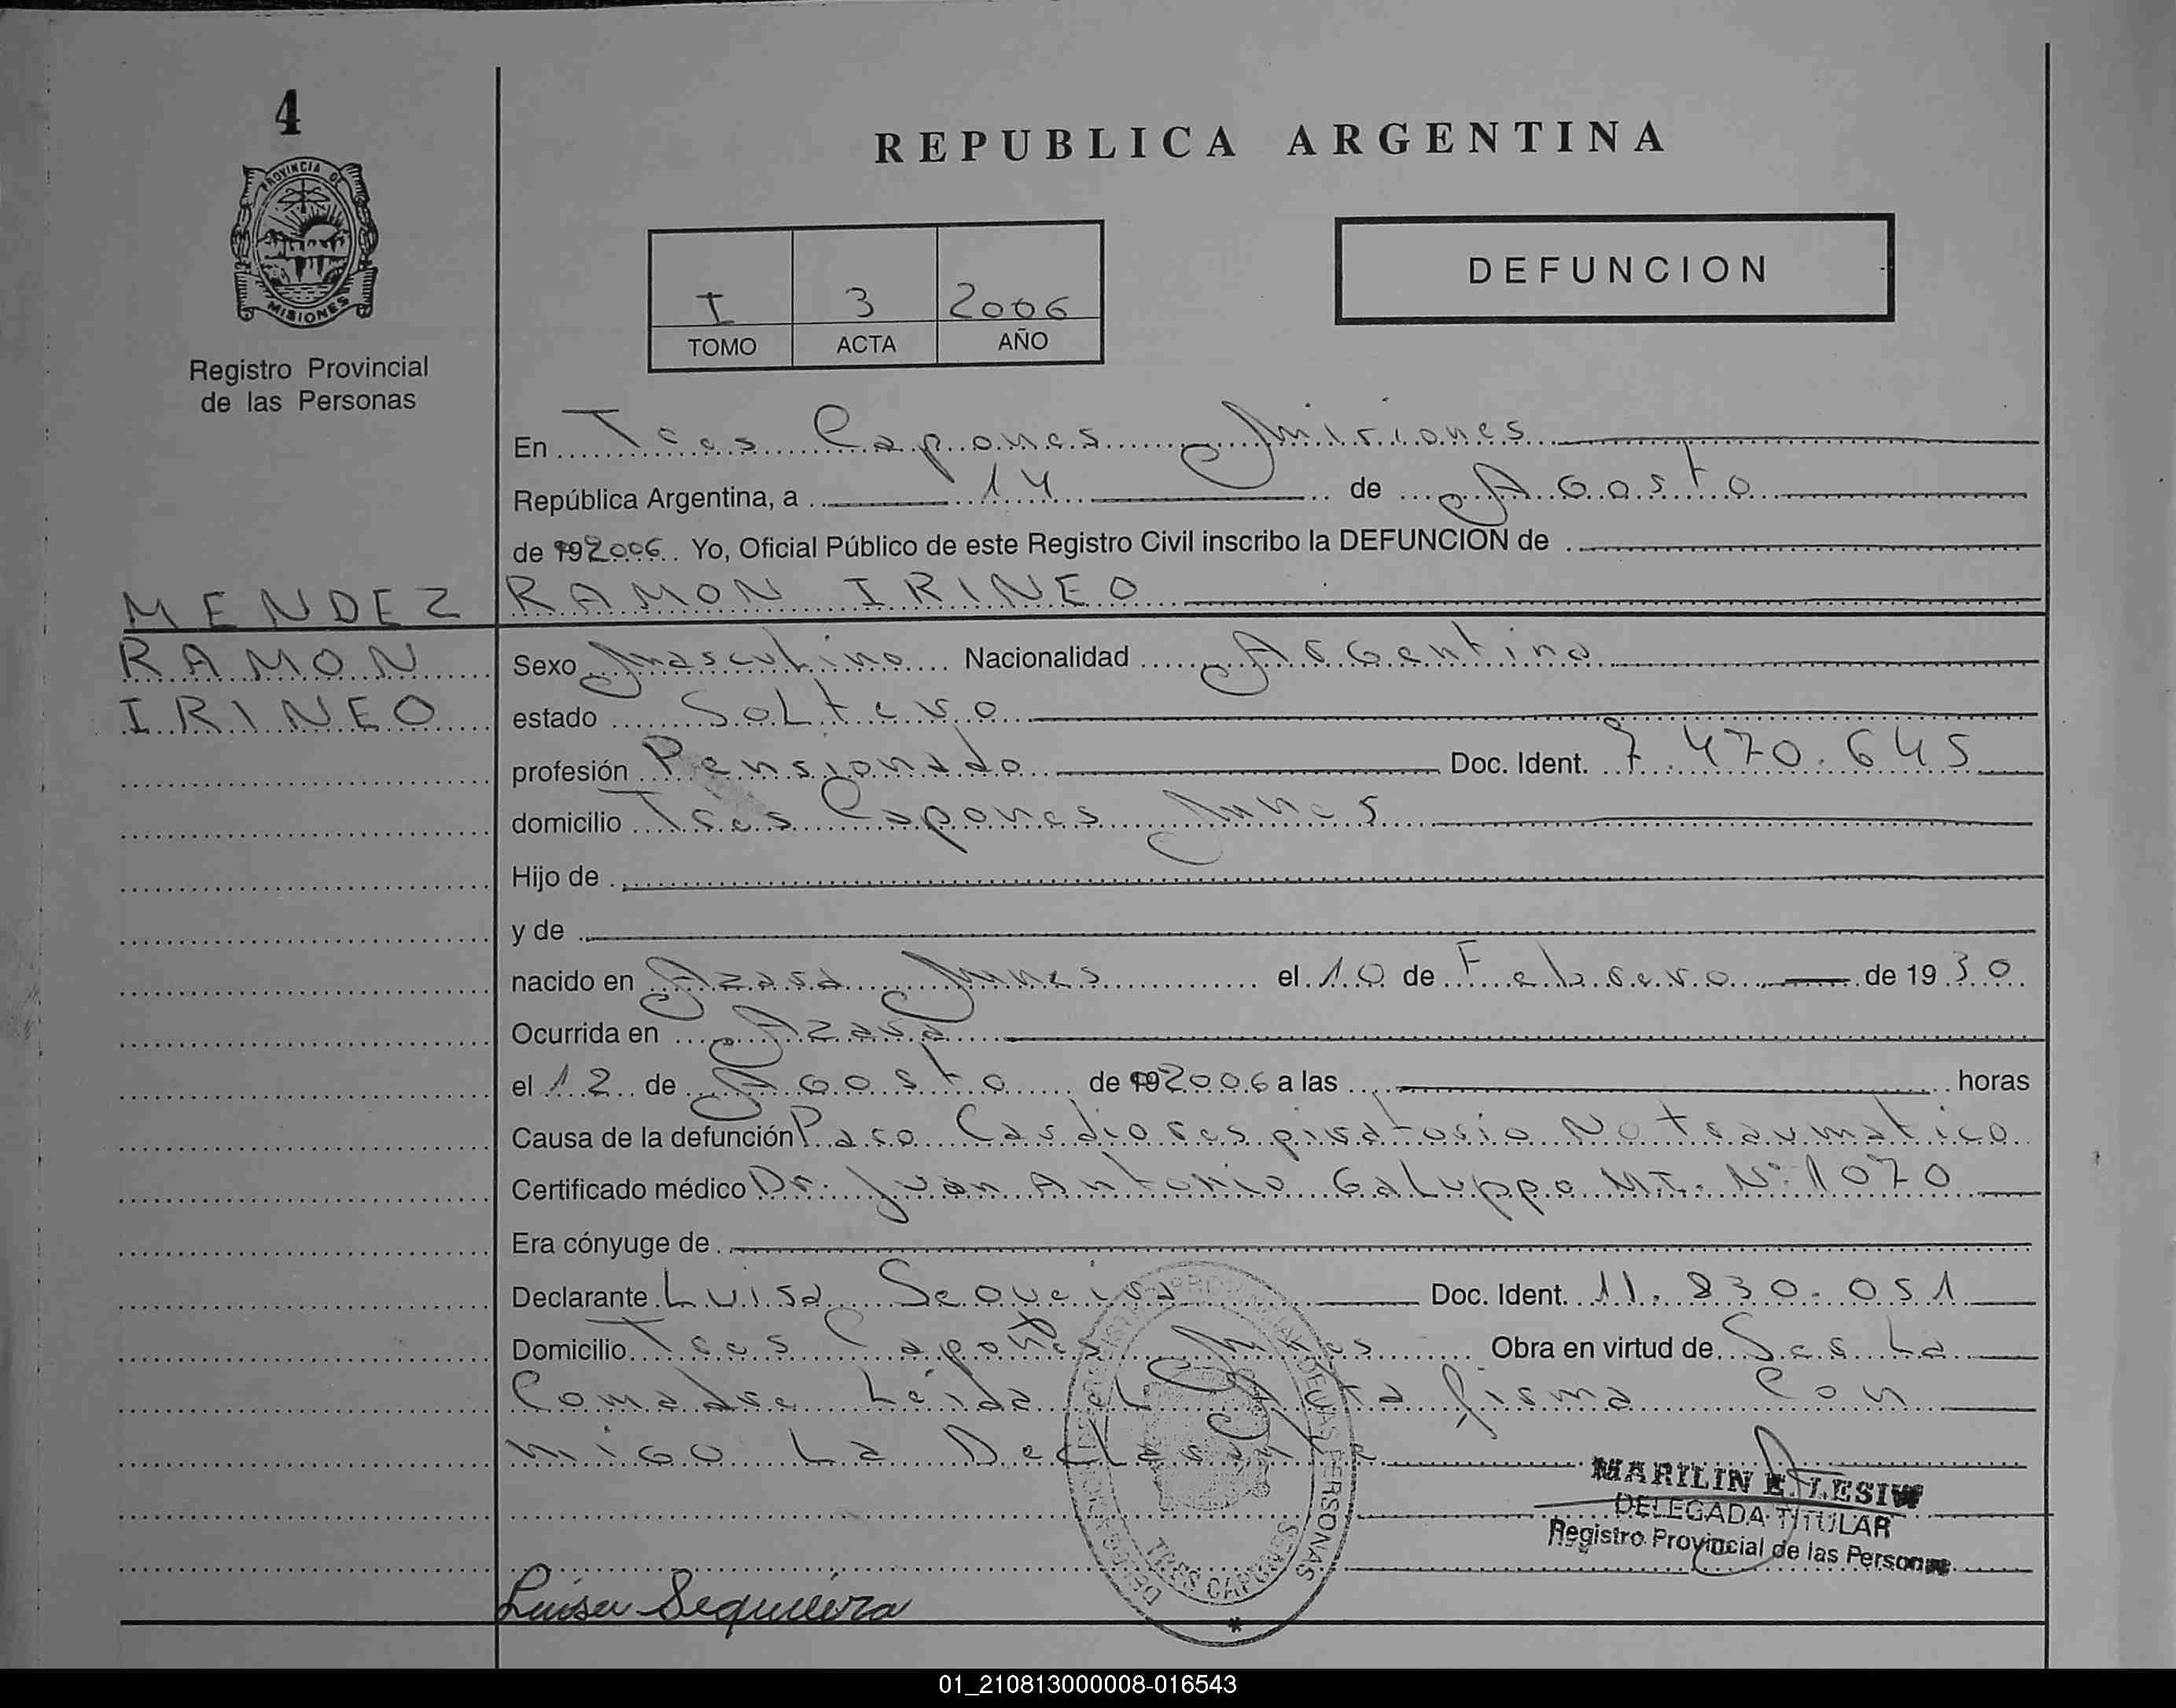 4
PROVINCIA DE
MISIONES
Registro Provincial
de las Personas
REPUBLICA ARGENTINA
I 3 2006
TOMO ACTA AÑO
DEFUNCION
En Tres Capones Misiones
República Argentina, a 14 de Agosto
de 192006 Yo, Oficial Público de este Registro Civil inscribo la DEFUNCION de
MENDEZ RAMON IRINEO
RAMON Sexo Masculino Nacionalidad Argentina
IRINEO estado Soltero
profesión Pensionado Doc. Ident. 7.470.645
domicilio Tres Capones Mnes
Hijo de
y de
nacido en Azara Mnes el 10 de Febrero de 1930
Ocurrida en Azara
el 12 de Agosto de 192006 a las horas
Causa de la defunción Paro Cardiorespiratorio No traumatico
Certificado médico Dr. Juan Antonio Galuppo M.I. Nº 1070
Era cónyuge de
Declarante Luisa Sequeira Doc. Ident. 11.830.051
Domicilio Tres Capones Mnes Obra en virtud de Ser La
Comadre Leída el Acta firma Con
migo La Declarante
MARILIN E. LESIW
DELEGADA TITULAR
Registro Provincial de las Personas
TRES CAPONES
Luisa Sequueira
01_210813000008-016543